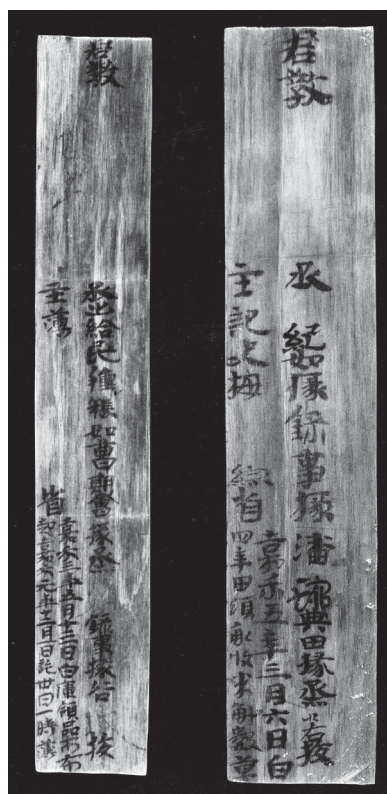 君教
丞　紀如掾　錄事掾潘　琬　典田掾烝　若　校
主記史梅　綜　省　嘉禾五年三月六日白
四年田頃畝收米斛數草
君教
丞出給民種粻如曹　期會掾烝　錄事掾谷　校
主簿　省　嘉禾三年五月十三日白庫領品市布
起嘉禾元年十二月一日訖卅日一時簿